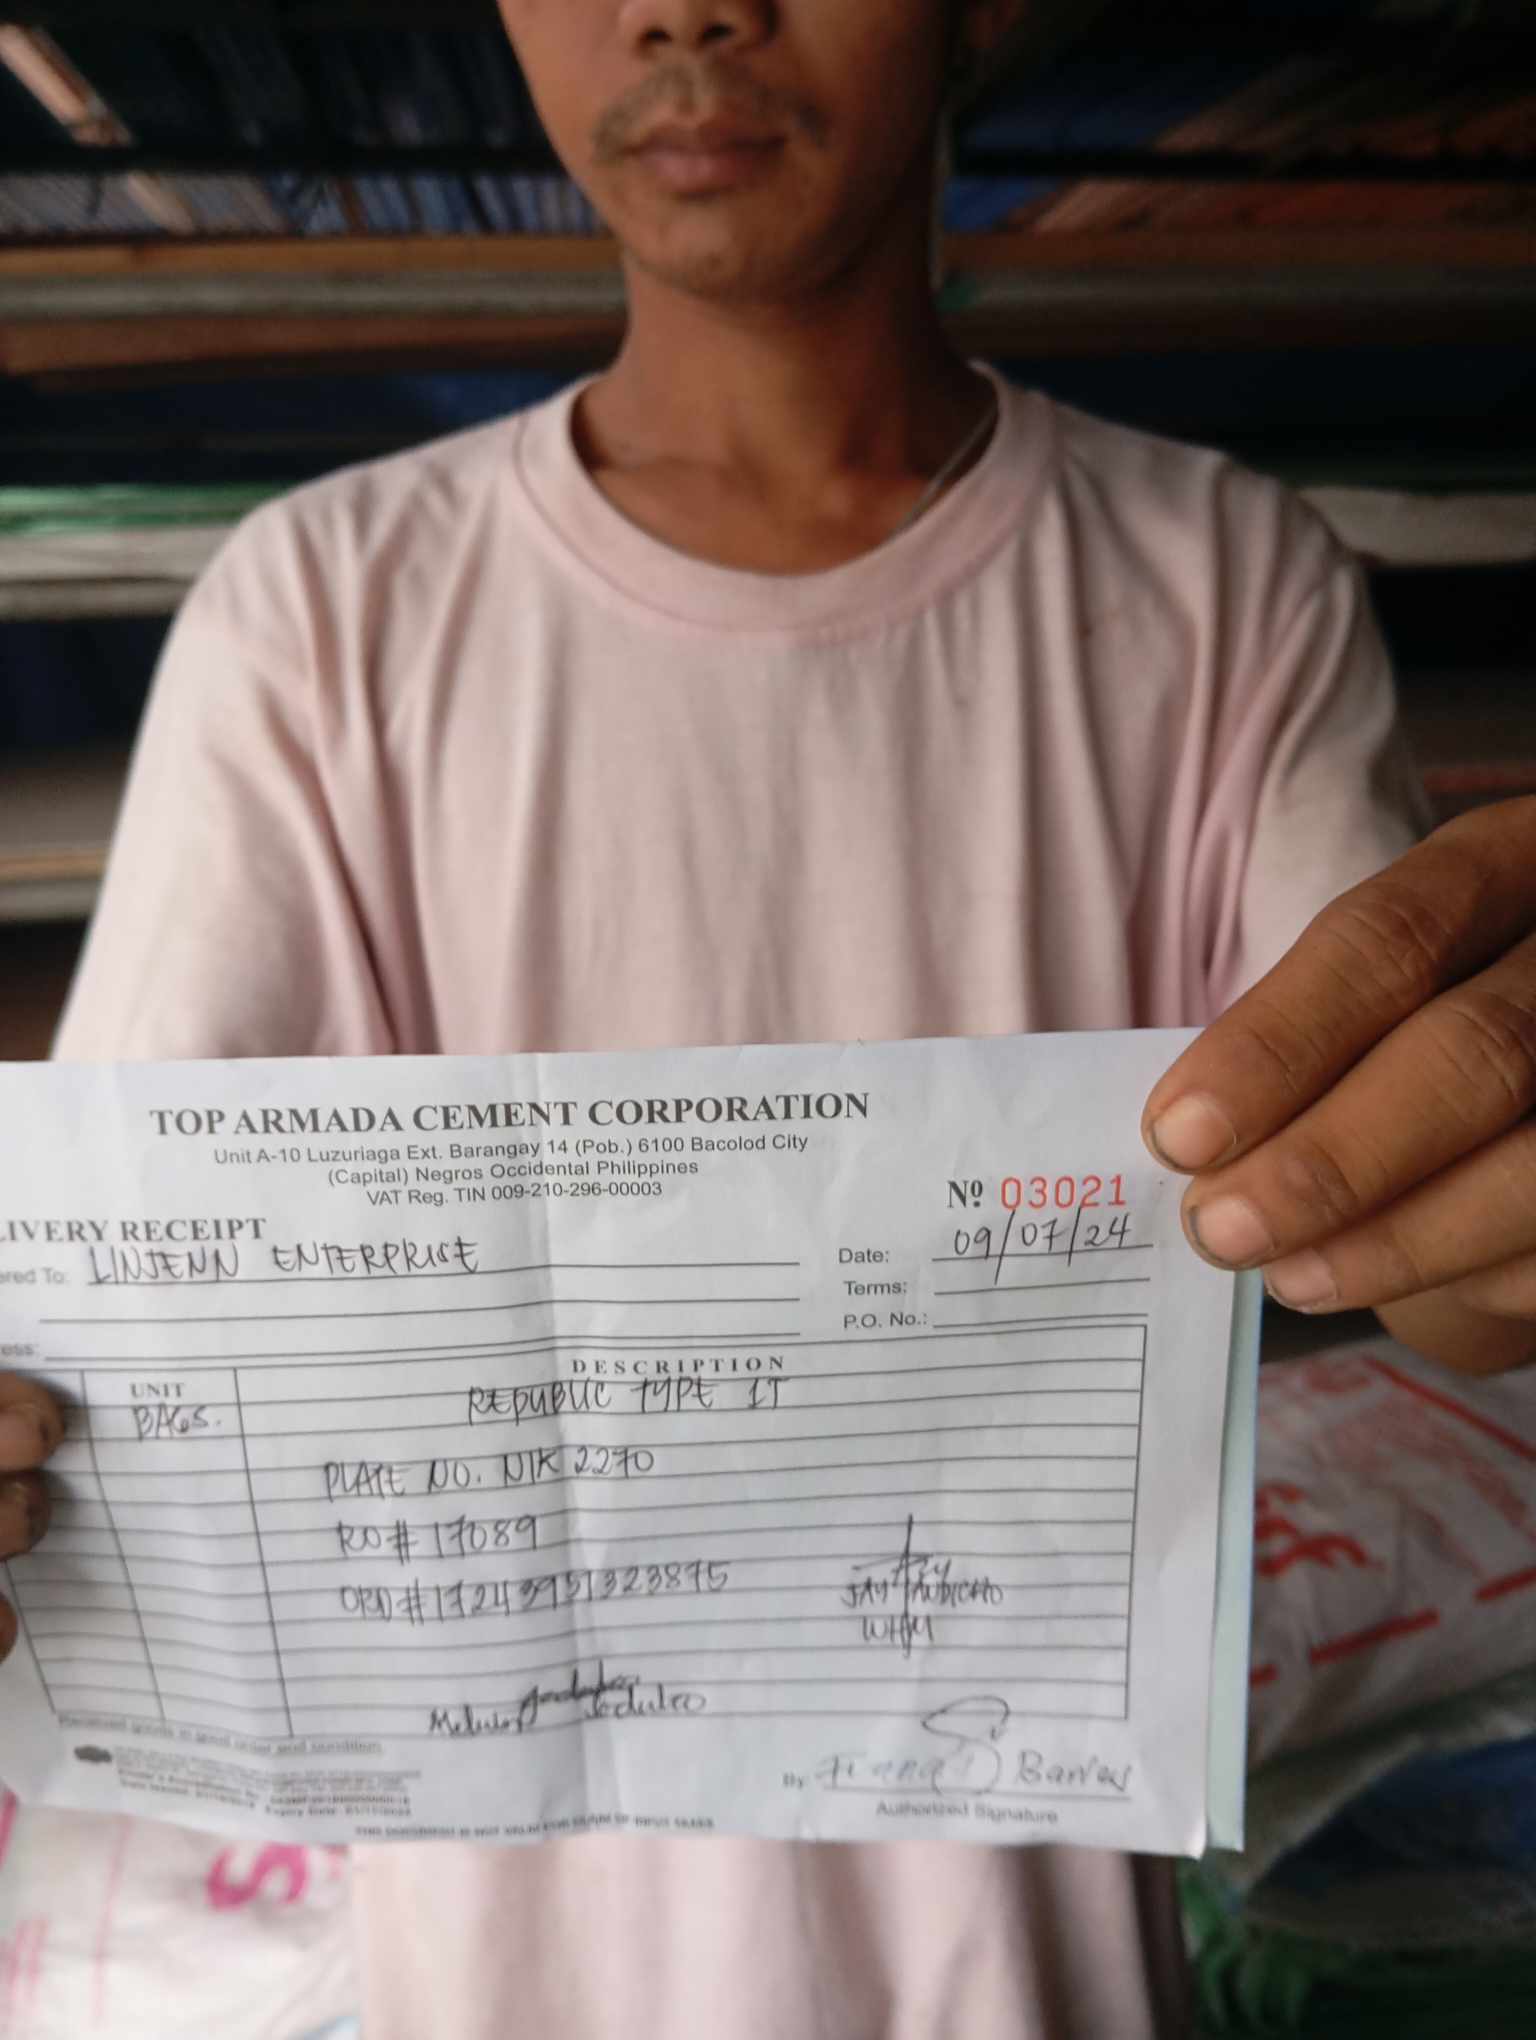 TOP ARMADA CEMENT CORPORATION
Unit A-10 Luzuriaga Ext. Barangay 14 (Pob.) 6100 Bacolod City
(Capital) Negros Occidental Philippines
VAT Reg. TIN 009-210-296-00003
Nº 03021
LIVERY RECEIPT
ered To: LINJENN ENTERPRISE
Date: 09/07/24
Terms:
P.O. No.:
ess:
UNIT DESCRIPTION
BAGS. REPUBLIC TYPE 1T
PLATE NO. NIK 2270
RO# 17089
ORD# 17243951323875
JAY
WHM
Received goods in good order and condition
By: Barres
Authorized Signature